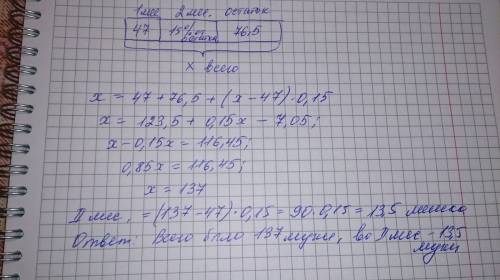 1 мес 2 мес. остаток
47 15% остатка 76,5
x всего
x = 47 + 76,5 + (x - 47) · 0,15
x = 123,5 + 0,15x - 7,05;
x - 0,15x = 116,45;
0,85x = 116,45;
x = 137
II мес. = (137 - 47) · 0,15 = 90 · 0,15 = 13,5 мешка
Ответ: Всего было 137 муки, во II мес - 13,5
муки